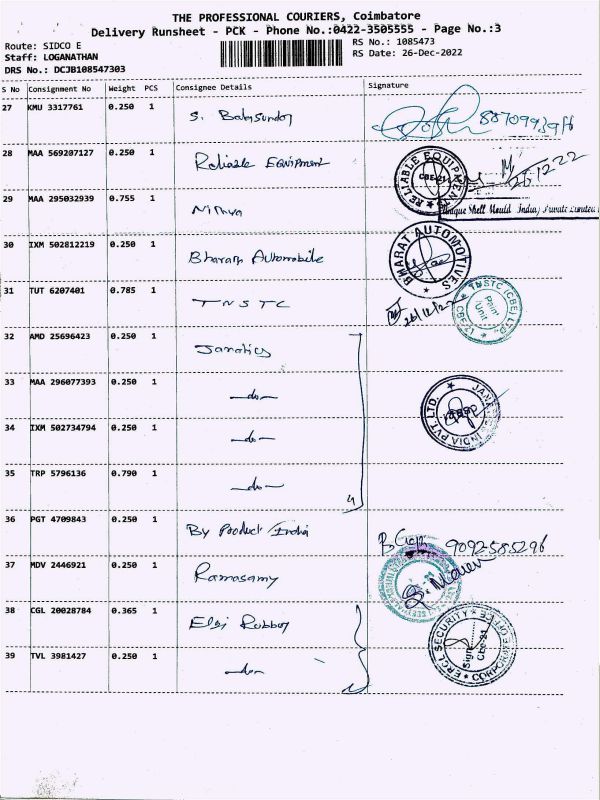 THE PROFESSIONAL COURIERS, Coimbatore
Delivery Runsheet - PCK - Phone No.:0422-3505555 - Page No.:3
Route: SIDCO E
RS No.: 1085473
Staff: LOGANATHAN
RS Date: 26-Dec-2022
DRS No.: DCJB108547303
S No Consignment No Weight PCS Consignee Details Signature
27 KMU 3317761 0.250 1 S. Balasundar
28 MAA 569207127 0.250 1 Reliable Equipment RELIABLE EQUIPMENT CBE-21 26/12/22
29 MAA 295032939 0.755 1 Nithya Unique Shell Mould India Private Limited
30 IXM 502812219 0.250 1 Bharath Automobile BHARAT AUTOMOTIVES
31 TUT 6207401 0.785 1 TNSTC 26/12/22 TNSTC (CBE) LTD. Unit
32 AMD 25696423 0.250 1 Janatics
33 MAA 296077393 0.250 1 —do— INDIA PVT. LTD.
34 IXM 502734794 0.250 1 —do—
35 TRP 5796136 0.790 1 —do—
36 PGT 4709843 0.250 1 By Product India 9092585296
37 MDV 2446921 0.250 1 Ramasamy
38 CGL 20028784 0.365 1 Elgi Rubber ERCL SECURITY Sign Cbe-21
39 TVL 3981427 0.250 1 —do—